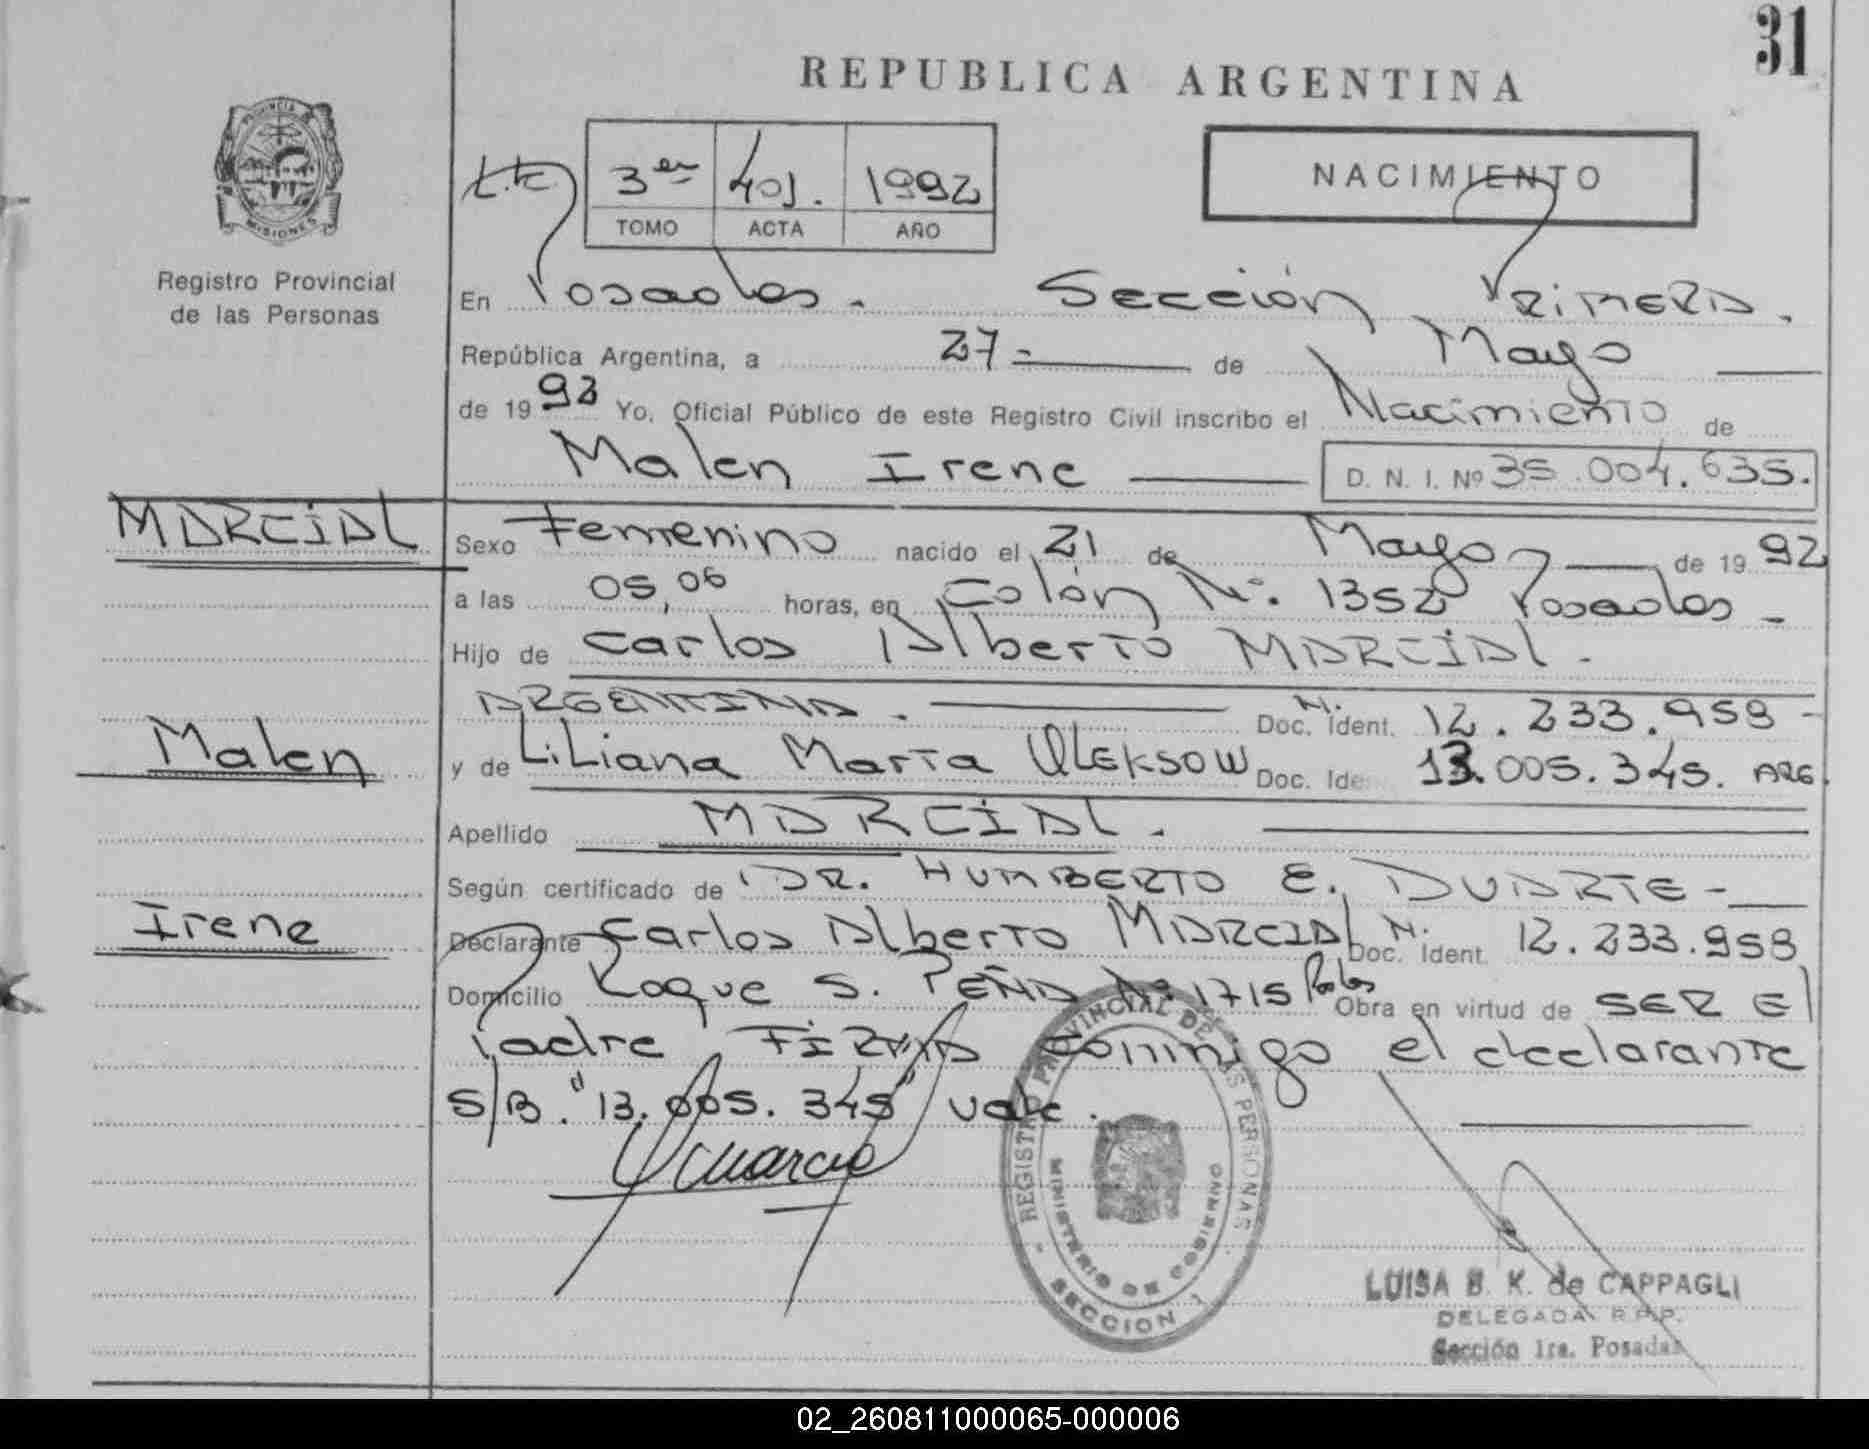 31
REPUBLICA ARGENTINA
PROVINCIA
MISIONES
Registro Provincial
de las Personas
3er 401. 1992
TOMO ACTA AÑO
NACIMIENTO
En Posadas. Sección PRIMERA.
República Argentina, a 27 - de Mayo
de 19 92 Yo, Oficial Público de este Registro Civil inscribo el Nacimiento de
Malen Irene D. N. I. Nº 35.004.635.
MARCIAL
Sexo Femenino nacido el 21 de Mayo de 19 92
a las 05,06 horas, en Colón Nº. 1352 Posadas -
Hijo de Carlos Alberto MARCIAL -
ARGENTINA. Doc. N. Ident. 12.233.958 -
Malen
y de Liliana Marta OLEKSOW Doc. Ide 13.005.345. ARG.
Apellido MARCIAL.
Según certificado de DR. HUMBERTO E. DUARTE -
Irene
Declarante Carlos Alberto MARCIAL Doc. N. Ident. 12.233.958
Domicilio Roque S. PEÑA Nº 1715 Pdas Obra en virtud de SER El
Padre FIRMA conmigo el declarante
S/B. "13.005.345" vale.
REGISTRO PROVINCIAL DE LAS PERSONAS
MINISTERIO DE GOBIERNO
SECCION 1
LUISA B. K. de CAPPAGLI
DELEGADA R.P.P.
Sección 1ra. Posadas
02_260811000065-000006